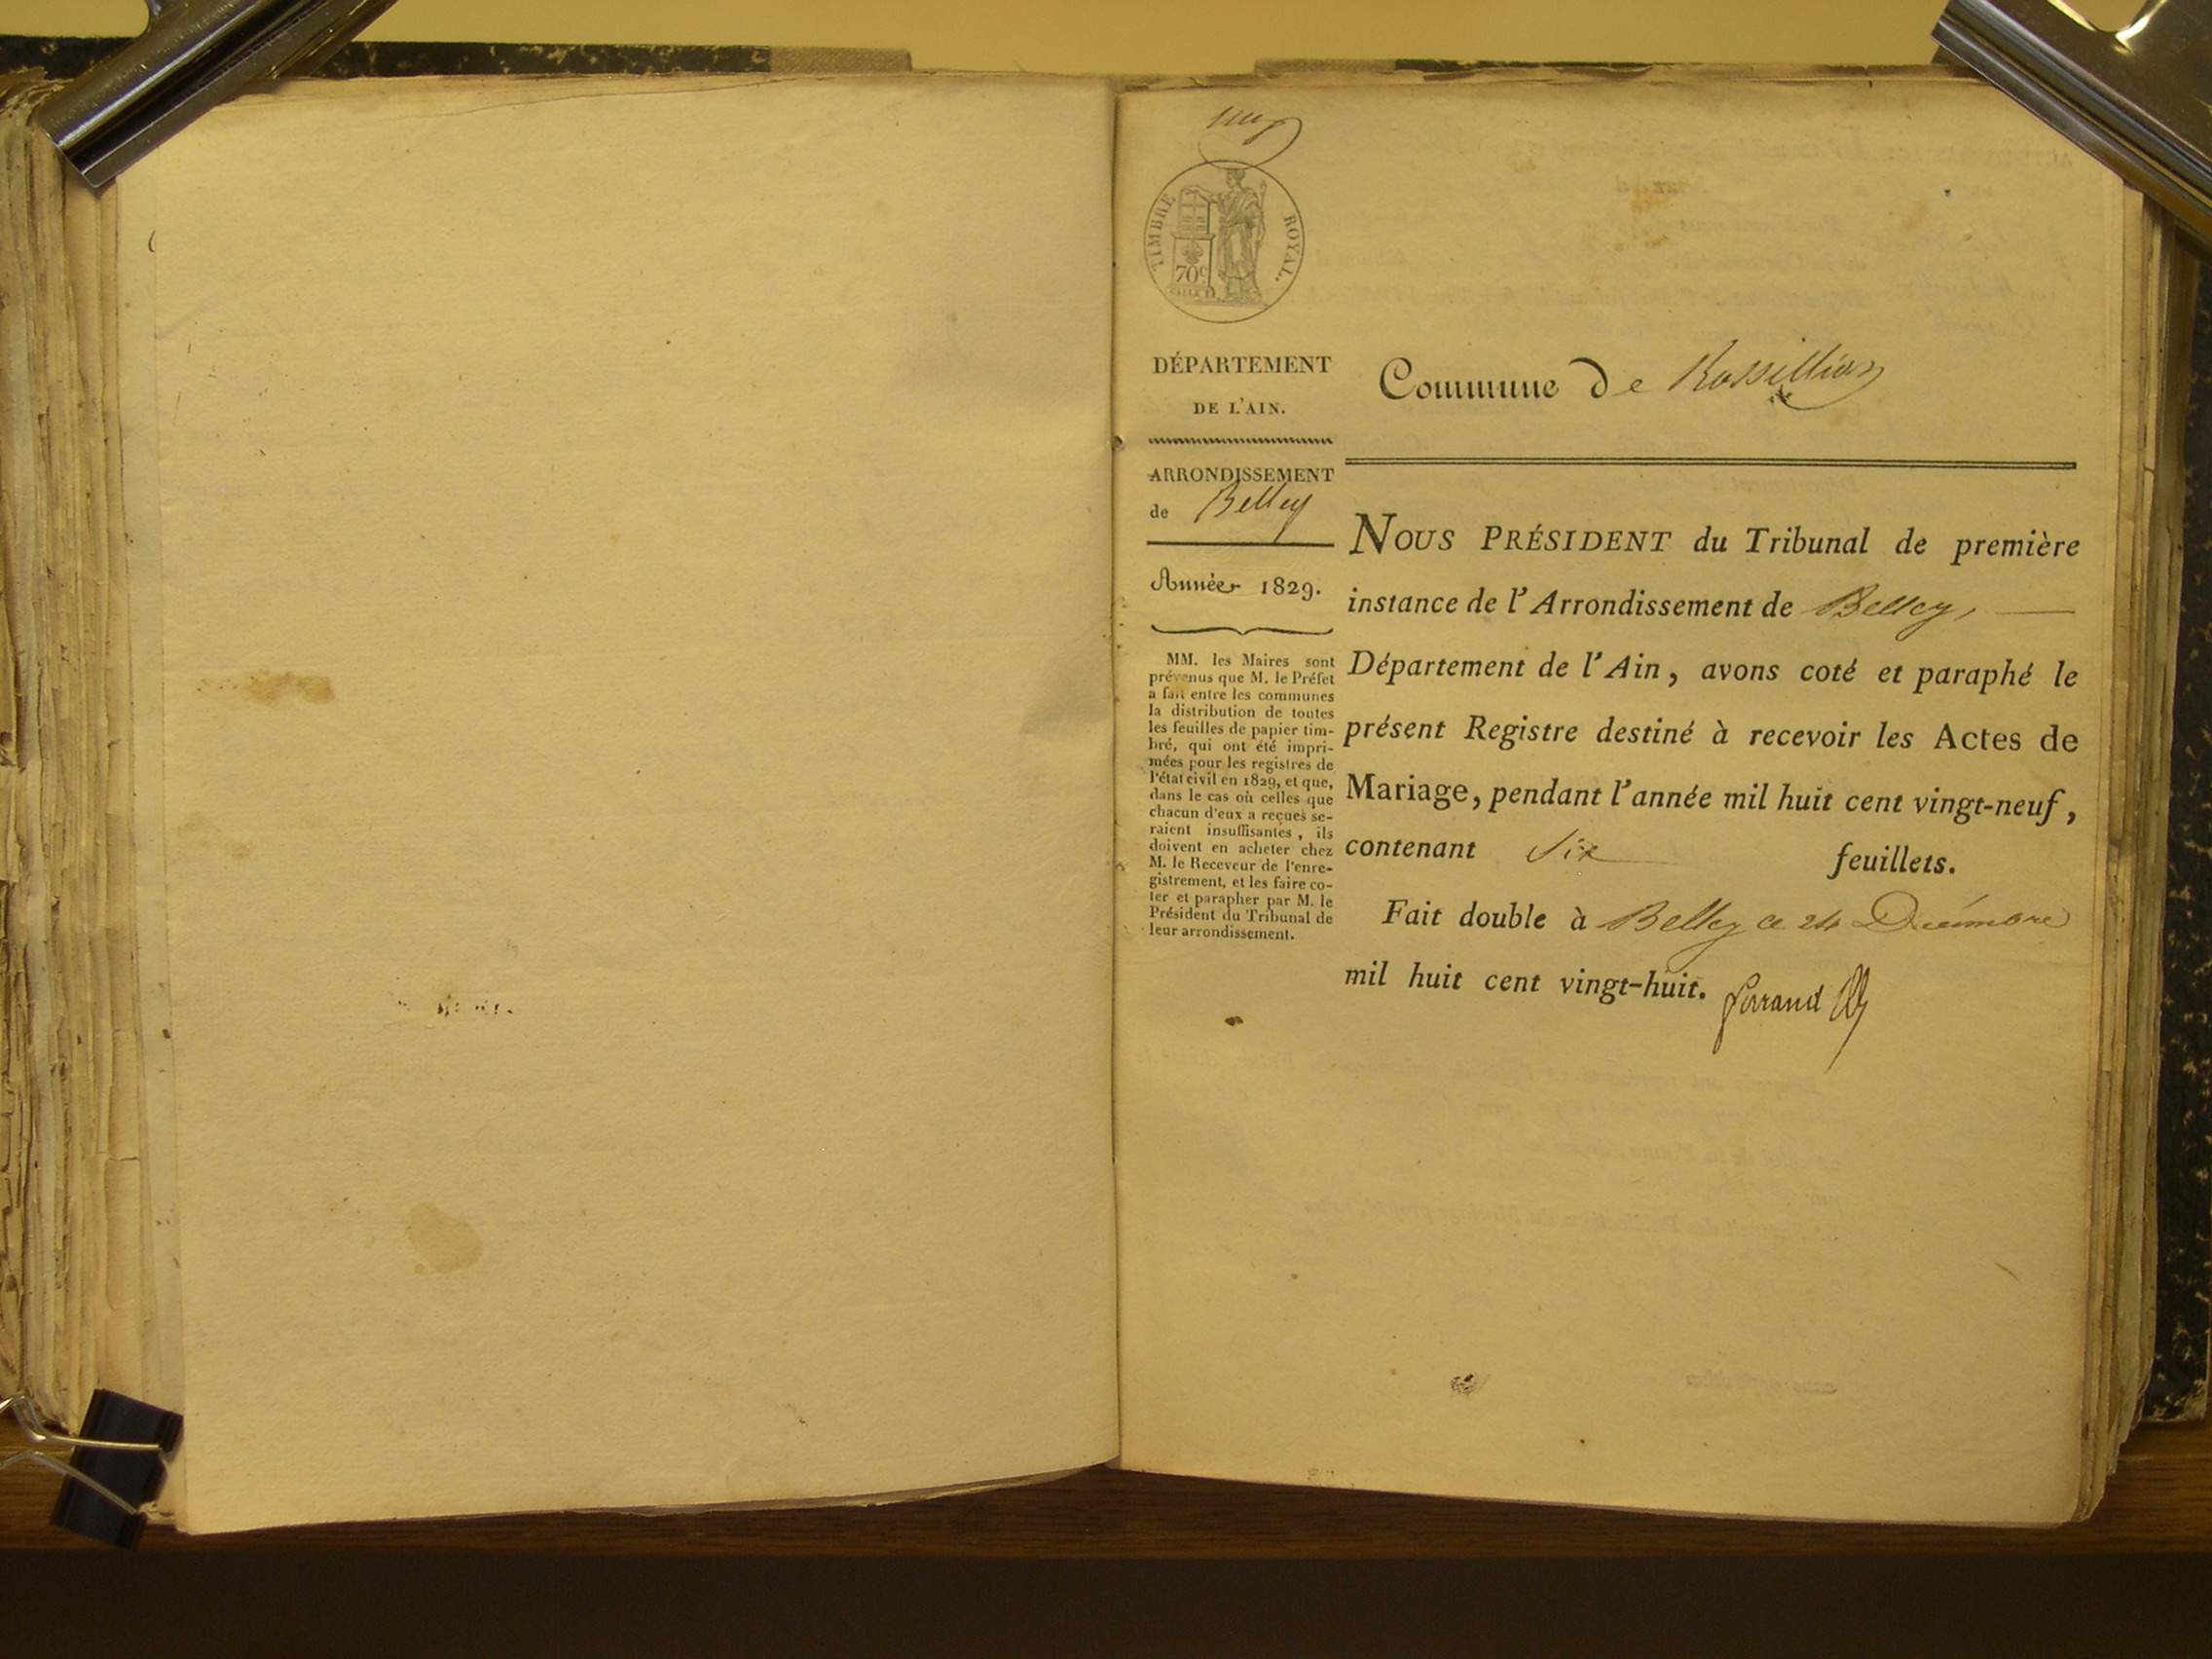 TIMBRE ROYAL.
70c
DÉPARTEMENT
DE L'AIN.
ARRONDISSEMENT
de Belley
Année 1829.
MM. les Maires sont
prévenus que M. le Préfet
a fait entre les communes
la distribution de toutes
les feuilles de papier tim-
bré, qui ont été impri-
mées pour les registres de
l'état civil en 1829, et que,
dans le cas où celles que
chacun d'eux a reçues se-
raient insuffisantes, ils
doivent en acheter chez
M. le Receveur de l'enre-
gistrement, et les faire co-
ter et parapher par M. le
Président du Tribunal de
leur arrondissement.
Commune de Rossillion
NOUS PRÉSIDENT du Tribunal de première
instance de l'Arrondissement de Belley,
Département de l'Ain, avons coté et paraphé le
présent Registre destiné à recevoir les Actes de
Mariage, pendant l'année mil huit cent vingt-neuf,
contenant Six feuillets.
Fait double à Belley ce 24 Décembre
mil huit cent vingt-huit.